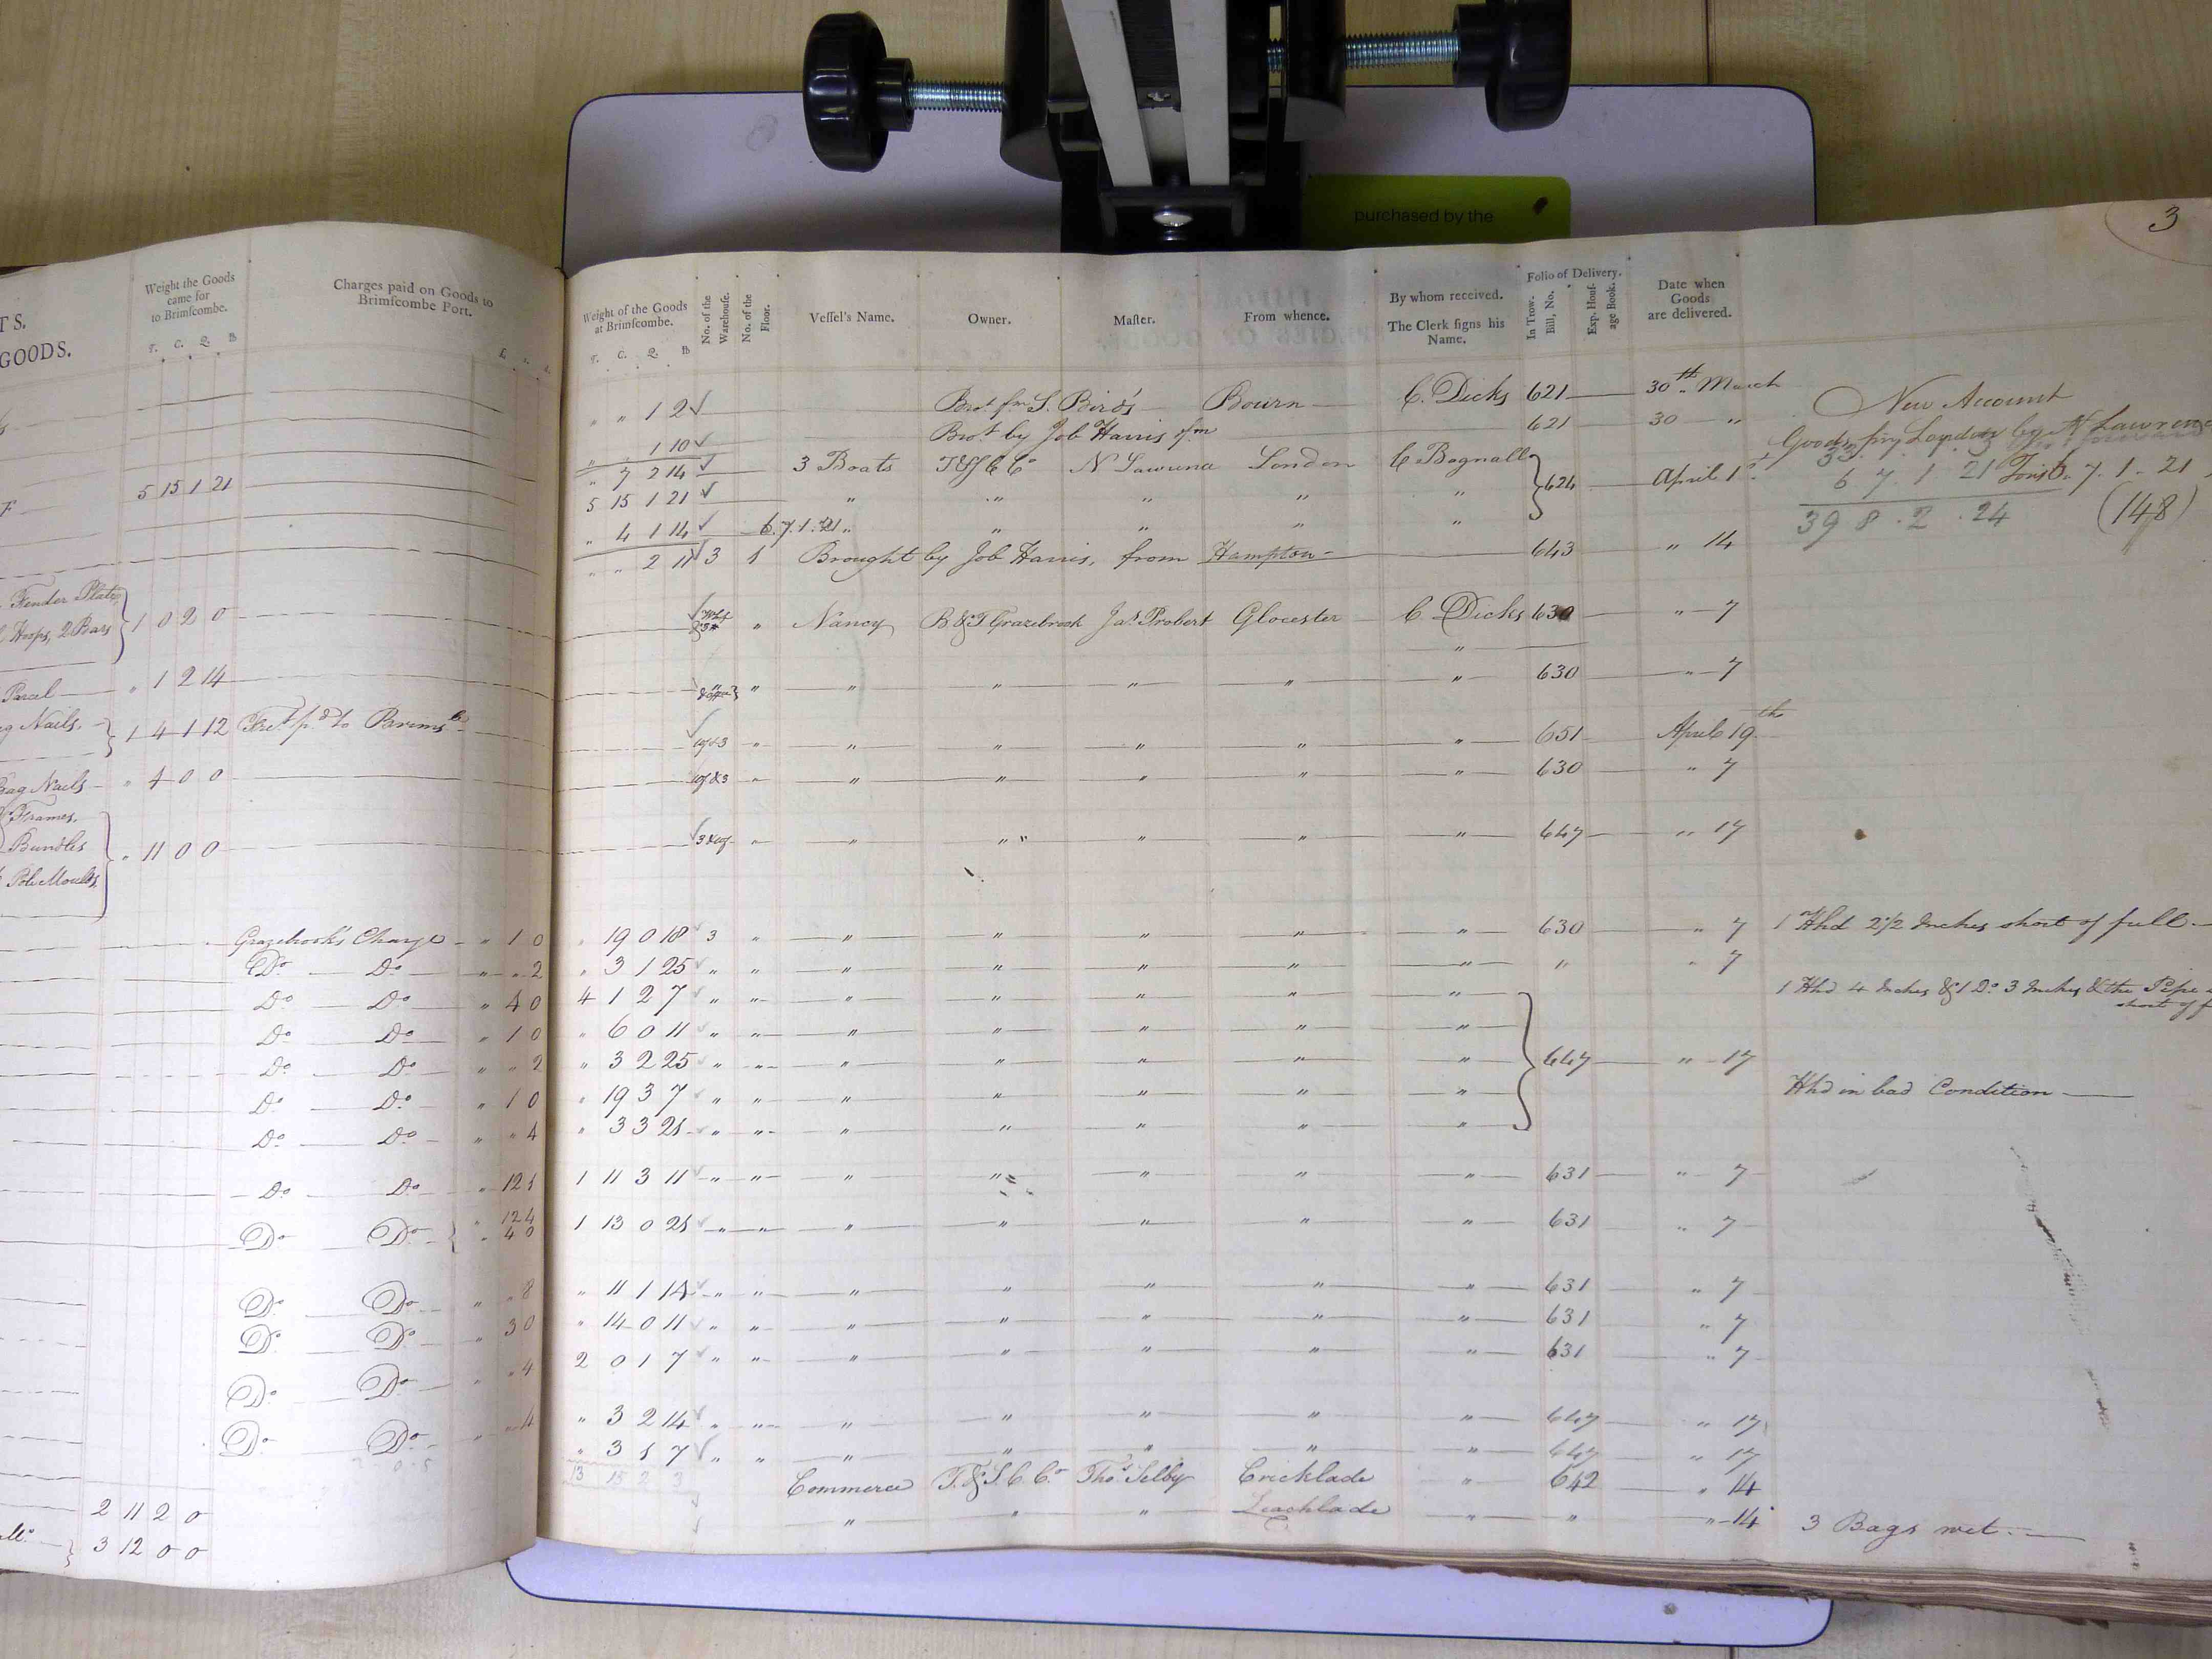 purchased by the
3
TS.
GOODS.
Weight the Goods
came for
to Brimſcombe.
T. C. Q. lb
Charges paid on Goods to
Brimſcombe Port.
£. s. d.
5 15 1 21
Fender Plates
Hoops, 2 Bars } 1 0 2 0
Parcel " 1 2 14
Nails, } 1 4 1 12
Bag Nails " 4 0 0
Frames,
Bundles " 11 0 0
Grazebrook's Charge " 1 0
Do Do " " 2
Do Do " 4 0
Do Do " 1 0
Do Do " " 2
Do Do " 1 0
Do Do " " 4
Do Do " 12 1
" 12 4
Do Do } " 4 0
Do Do " " 8
Do Do " 3 0
Do Do " " 4
Do Do " " 4
2 11 2 0
3 12 0 0
Weight of the Goods
at Brimſcombe.
T. C. Q. lb
No. of the
Warehouſe.
No. of the
Floor.
Veſſel's Name.
Owner.
Maſter.
From whence.
By whom received.
The Clerk ſigns his
Name.
Folio of Delivery.
In Trow.
Bill, No.
Exp. Houſ-
age Book.
Date when
Goods
are delivered.
" " 1 2 ✓ Brot. fm S. Bird's Bourn C. Dicks 621 30th March
" " 1 10 ✓ Brot by Job Harris fm 621 30 "
" 7 2 14 ✓ 3 Boats T&S C Co N Lawrence London C Bagnall
5 15 1 21 ✓ " " " " " } 624 April 1st
" 4 1 14 ✓ 6.7.1.21 " " " " "
" " 2 11 ✓ 3 1 Brought by Job Harris, from Hampton 643 " 14
New Account
Goods from London by N Lawrence
6 7 . 1 . 21 Tons 6 . 7 . 1 . 21
39 8 . 2 . 24 (148)
Nancy B & T Grazebrook Jas. Probert Glocester C Dicks 630 " 7
" " " " " " 630 " 7
" " " " " " 651 April 19th
" " " " " " 630 " 7
" " " " " " 647 " 17
" 19 0 18 3 " " " " " " 630 " 7 1 Hhd 2 1/2 Inches short of full
" 3 1 25 " " " " " " " " " 7
4 1 2 7 " " " " " " " 1 Hhd 4 Inches & 1 Do 3 Inches & the Pipe
short of f
" 6 0 11 " " " " " " "
" 3 2 25 " " " " " " " } 647 " 17
" 19 3 7 " " " " " " " Hhd in bad Condition
" 3 3 21 " " " " " " "
1 11 3 11 " " " " " " " 631 " 7
1 13 0 21 " " " " " " " 631 " 7
" 11 1 14 " " " " " " " 631 " 7
" 14 0 11 " " " " " " " 631 " 7
2 0 1 7 " " " " " " " 631 " 7
" 3 2 14 " " " " " " " 647 " 17
" 3 1 7 " " " " " " " 647 " 17
13 15 2 3
Commerce T. & S. C. Co Thos. Selby Cricklade " 642 " 14
" " " Leachlade " " " 14 3 Bags wet.